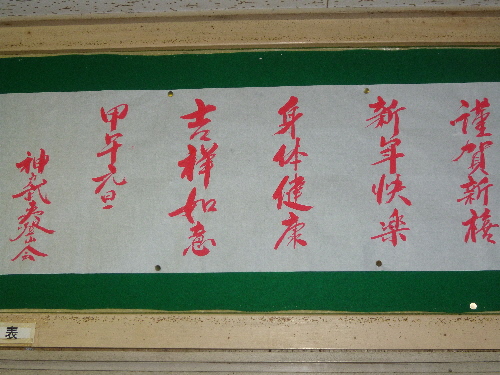 謹賀新禧
新年快楽
身体健康
吉祥如意
甲午元旦
神武太發会
表